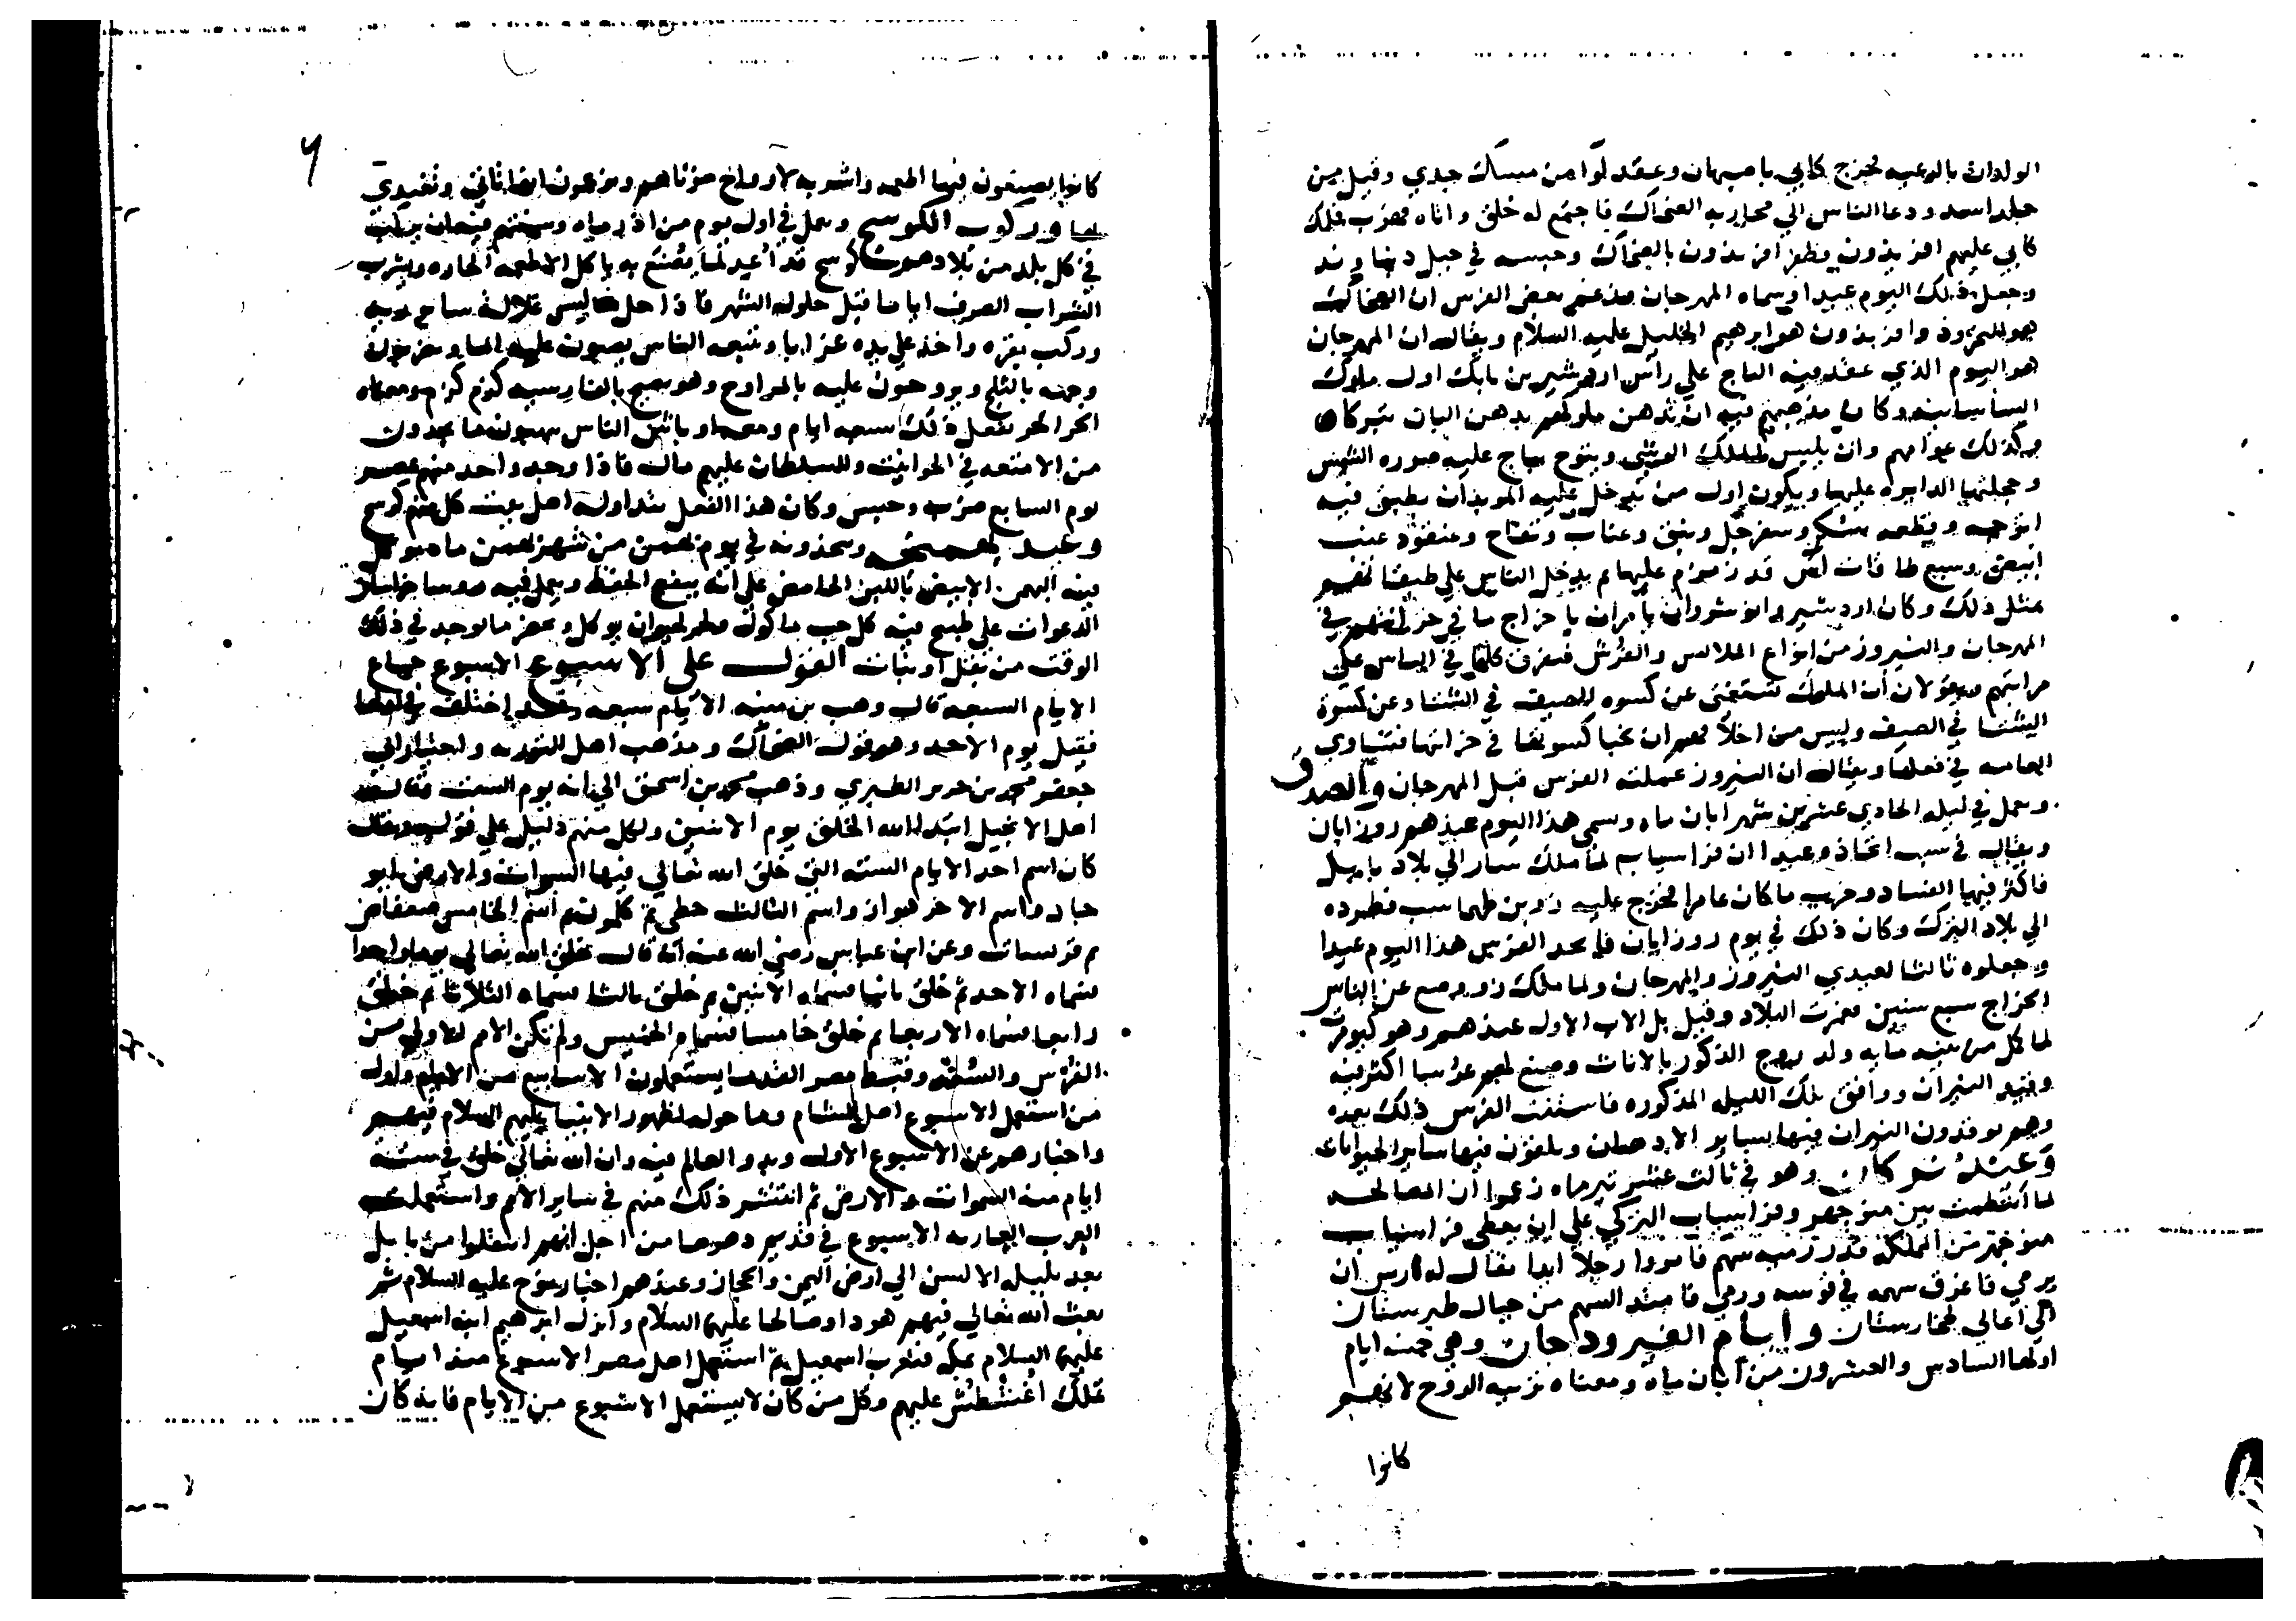 الولدان بالرعيه فخرج كابي باصبهان وعقد لوا من مسك جدي وقيل من
جلد اسد ودعا الناس الي محاربه الضحاك فاجتمع له خلق واتاه فهرب فملك
كابي عليهم افريدون وظفر افريدون بالضحاك وحبسه في جبل دنباوند
وجعل ذلك اليوم عيدا وسماه المهرجان وزعم بعض الفرس ان الضحاك
هو النمرود وافريدون هو ابرهيم الخليل عليه السلام ويقال ان المهرجان
هو اليوم الذي عقد فيه التاج علي راس اردشير بن بابك اول ملوك
الساسانيه وكان مذهبهم فيه ان يدهن ملوكهم بدهن البان تبركا
وكذلك عوامهم وان يلبس الملك الوشي ويتوج بتاج عليه صوره الشمس
وعجلتها الدايره عليها ويكون اول من يدخل عليه الموبذان بطبق فيه
اترجه وقطعه سكر وسفرجل ونبق وعناب وتفاح وعنقود عنب
ابيض وسبع طاقات اس قد زمزم عليها ثم يدخل الناس علي طبقاتهم
بمثل ذلك وكان اردشير وانوشروان يامران باخراج ما في خزاينهم في
المهرجان والنيروز من انواع الملابس والفرش فتفرق كلها في الناس علي
مراتبهم ويقولان ان الملوك تستغني عن كسوه الصيف في الشتا وعن كسوة
الشتا في الصيف وليس من اخلاقهم ان تخبا كسوتها في خزاينها فتساوي
العامه في فعلها ويقال ان النيروز عملته الفرس قبل المهرجان والصدق
ويعمل في ليله الحادي عشر من شهر ابان ماه ويسمي هذا اليوم عيدهم روز ابان
ويقال في سبب اتخاذه عيدا ان فراسياب لما ملك سار الي بلاد بابل
فاكثر فيها الفساد وخرب ما كان عامرا فخرج عليه زو بن طهماسب فطرده
الي بلاد الترك وكان ذلك في يوم روز ابان فاتخذ الفرس هذا اليوم عيدا
وجعلوه ثالثا لعيدي النيروز والمهرجان ولما ملك زو وضع عن الناس
الخراج سبع سنين فعمرت البلاد وقيل بل الاب الاول عندهم وهو كيومرت
لما كمل من بنيه مايه ولد زوج الذكور بالاناث وصنع لهم عرسا اكثر فيه
وقيد النيران ووافق تلك الليله المذكوره فاستنت الفرس ذلك بعده
وهم يوقدون النيران فيها بساير الادهان ويلقون فيها ساير الحيوانات
وعيد تيركان وهو في ثالث عشر تيرماه زعموا ان المصالحه
لما انتظمت بين منوجهر وفراسياب التركي علي ان يعطي فراسياب
منوجهر من المملكه قدر رميه سهم فامروا رجلا ايدا يقال له ارس ان
يرمي فاغرق سهمه في قوسه ورمي فامتد السهم من جبال طبرستان
الي اعالي طخارستان وايام الفيرودجان وهي خمسه ايام
اولها السادس والعشرون من ابان ماه ومعناه تربيه الروح لانهم
كانوا
كانوا يصنعون فيها اطعمه واشربه لارواح موتاهم ويزعمون انها تاتي وتغتدي
بها وركوب الكوسج ويعمل في اول يوم من اذر ماه وسنتهم فيه ان يركب
في كل بلد من بلادهم كوسج قد اعد لما يصنع به باكل الاطعمه الحاره وبشرب
الشراب الصرف اياما قبل حلول الشهر فاذا حل لبس غلاله سابريه
وركب بقره واخذ علي يده غرابا وتتبعه الناس يصبون عليه الماء ويضربون
وجهه بالثلج ويروحون عليه بالمراوح وهو يصيح بالفارسيه كرم كرم ومعناه
الحر الحر يفعل ذلك سبعه ايام ومعه اوباش الناس ينهبون ما يجدون
من الامتعه في الحوانيت وللسلطان عليهم مال فاذا وجد واحد منهم بعد عصر
يوم السابع ضرب وحبس وكان هذا الفعل يتداوله اهل بيت كلهم كوسج
وعيد بهمنجه ويتخذونه في يوم بهمن من شهر بهمن ماه يوكل
فيه البهمن الابيض باللبن الحامض علي انه ينفع الحفظ ويعمل فيه روسا خراسان
الدعوات علي طبيخ فيه كل حب ماكول ولحم كل حيوان يوكل ويحضر ما يوجد في ذلك
الوقت من بقل او نبات القول على الاسبوع الاسبوع جماع
الايام السبعه قال وهب بن منبه الايام سبعه وقد اختلف في اولها
فقيل يوم الاحد وهو قول الضحاك ومذهب اهل التوريه واختيار ابي
جعفر محمد بن جرير الطبري وذهب محمد بن اسحق الي انه يوم السبت وقالت
اهل الانجيل ابتدا الله الخلق يوم الاثنين ولكل منهم دليل علي قوله ويقال
كان اسم احد الايام السته التي خلق الله تعالي فيها السموات والارض ابو
جاد واسم الاخر هواز واسم الثالث حطي ثم كلمون ثم اسم الخامس صعفاض
ثم قرسات وعن ابن عباس رضي الله عنه انه قال خلق الله تعالي يوما واحدا
فسماه الاحد ثم خلق ثانيا فسماه الاثنين ثم خلق ثالثا فسماه الثلاثا ثم خلق
رابعا فسماه الاربعا ثم خلق خامسا فسماه الخميس ولم تكن الامم الاولي من
الفرس والسغد وقبط مصر القدما يستعملون الاسابيع من الايام واول
من استعمل الاسبوع اهل الشام وما حوله لظهور الانبيا عليهم السلام فيهم
واخبارهم عن الاسبوع الاول وبدو العالم فيه وان الله تعالي خلق في سته
ايام منه السموات والارض ثم انتشر ذلك منهم في ساير الامم واستعملته
العرب العاربه الاسبوع في قديم دهرها من اجل انهم انتقلوا من بابل
بعد تبلبل الالسن الي ارض اليمن والحجاز وعندهم اخبار نوح عليه السلام ثم
بعث الله تعالي فيهم هودا وصالحا عليهما السلام وانزل ابرهيم ابنه اسمعيل
عليهما السلام بمكه فتعرب اسمعيل ثم استعمل اهل مصر الاسبوع منذ ايام
تملك اغسطس عليهم وكل من كان لا يستعمل الاسبوع من الايام فانه كان